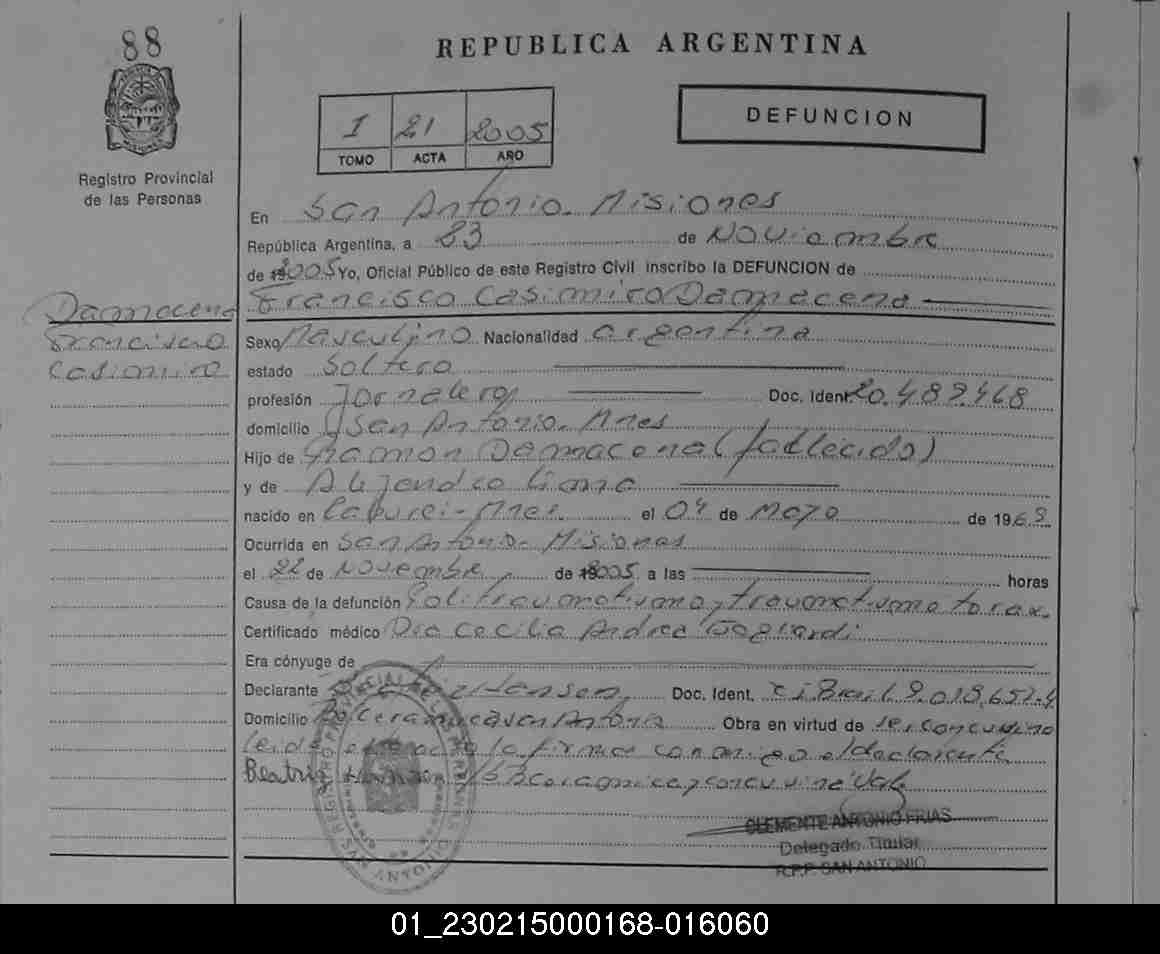 88
REPUBLICA ARGENTINA
DEFUNCION
I 21 2005
TOMO ACTA AÑO
Registro Provincial
de las Personas
En San Antonio. Misiones
República Argentina, a 23 de Noviembre
de 2005 Yo, Oficial Público de este Registro Civil inscribo la DEFUNCION de
Francisco Casimiro Damacena
Damacena
Francisco
Casimiro
Sexo Masculino Nacionalidad argentina
estado Soltero
profesión Jornalero Doc. Ident. 20.489.468
domicilio San Antonio. Mnes
Hijo de Ramon Damacena (fallecido)
y de Alejandra Lima
nacido en Caburei-Mnes. el 04 de Mayo de 1969
Ocurrida en San Antonio. Misiones
el 22 de Noviembre de 2005 a las horas
Causa de la defunción Politraumatismo, traumatismo torax.
Certificado médico Dra Cecilia Andrea
Era cónyuge de
Declarante Hansen, Doc. Ident. ci Brasil 9.018.652-4
Domicilio Bo Ceramica San Antonio Obra en virtud de ser concuvino
leida el acta la firma conmigo el declarante
Beatriz Ceramica, concuvina Vale
CLEMENTE ANTONIO FRIAS
Delegado Titular
R.P.P. SAN ANTONIO
01_230215000168-016060